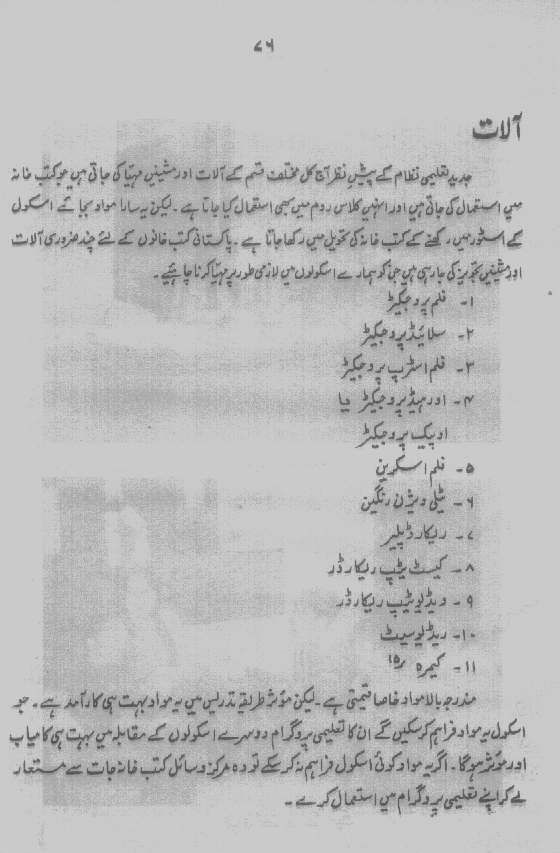 ۷۶
آلات
جدید تعلیمی نظام کے پیش نظر آج کل مختلف قسم کے آلات اور مشینیں مہیا کی جاتی ہیں جو کتب خانہ
میں استعمال کی جاتی ہیں اور انہیں کلاس روم میں بھی استعمال کیا جاتا ہے۔ لیکن یہ سارا مواد بجائے اسکول
کے اسٹور میں رکھنے کے کتب خانہ کی تحویل میں رکھا جاتا ہے۔ پاکستانی کتب خانوں کے لئے چند ضروری آلات
اور مشینیں تجویز کی جا رہی ہیں جن کو ہمارے اسکولوں میں لازمی طور پر مہیا کرنا چاہئیے۔
۱۔ فلم پروجیکٹر
۲۔ سلائیڈ پروجیکٹر
۳۔ فلم اسٹرپ پروجیکٹر
۴۔ اورہیڈ پروجیکٹر یا
اوپیک پروجیکٹر
۵۔ فلم اسکرین
۶۔ ٹیلی ویژن رنگین
۷۔ ریکارڈ پلیر
۸۔ کیسٹ ٹیپ ریکارڈر
۹۔ ویڈیو ٹیپ ریکارڈر
۱۰۔ ریڈیو سیٹ
۱۱۔ کیمرہ
مندرجہ بالا مواد خاصا قیمتی ہے۔ لیکن مؤثر طریقہ تدریس میں یہ مواد بہت ہی کارآمد ہے۔ جو
اسکول یہ مواد فراہم کر سکیں گے ان کا تعلیمی پروگرام دوسرے اسکولوں کے مقابلہ میں بہت ہی کامیاب
اور مؤثر ہوگا۔ اگر یہ مواد کوئی اسکول فراہم نہ کر سکے تو وہ مرکز وسائل کتب خانہ جات سے مستعار
لے کر اپنے تعلیمی پروگرام میں استعمال کرے۔